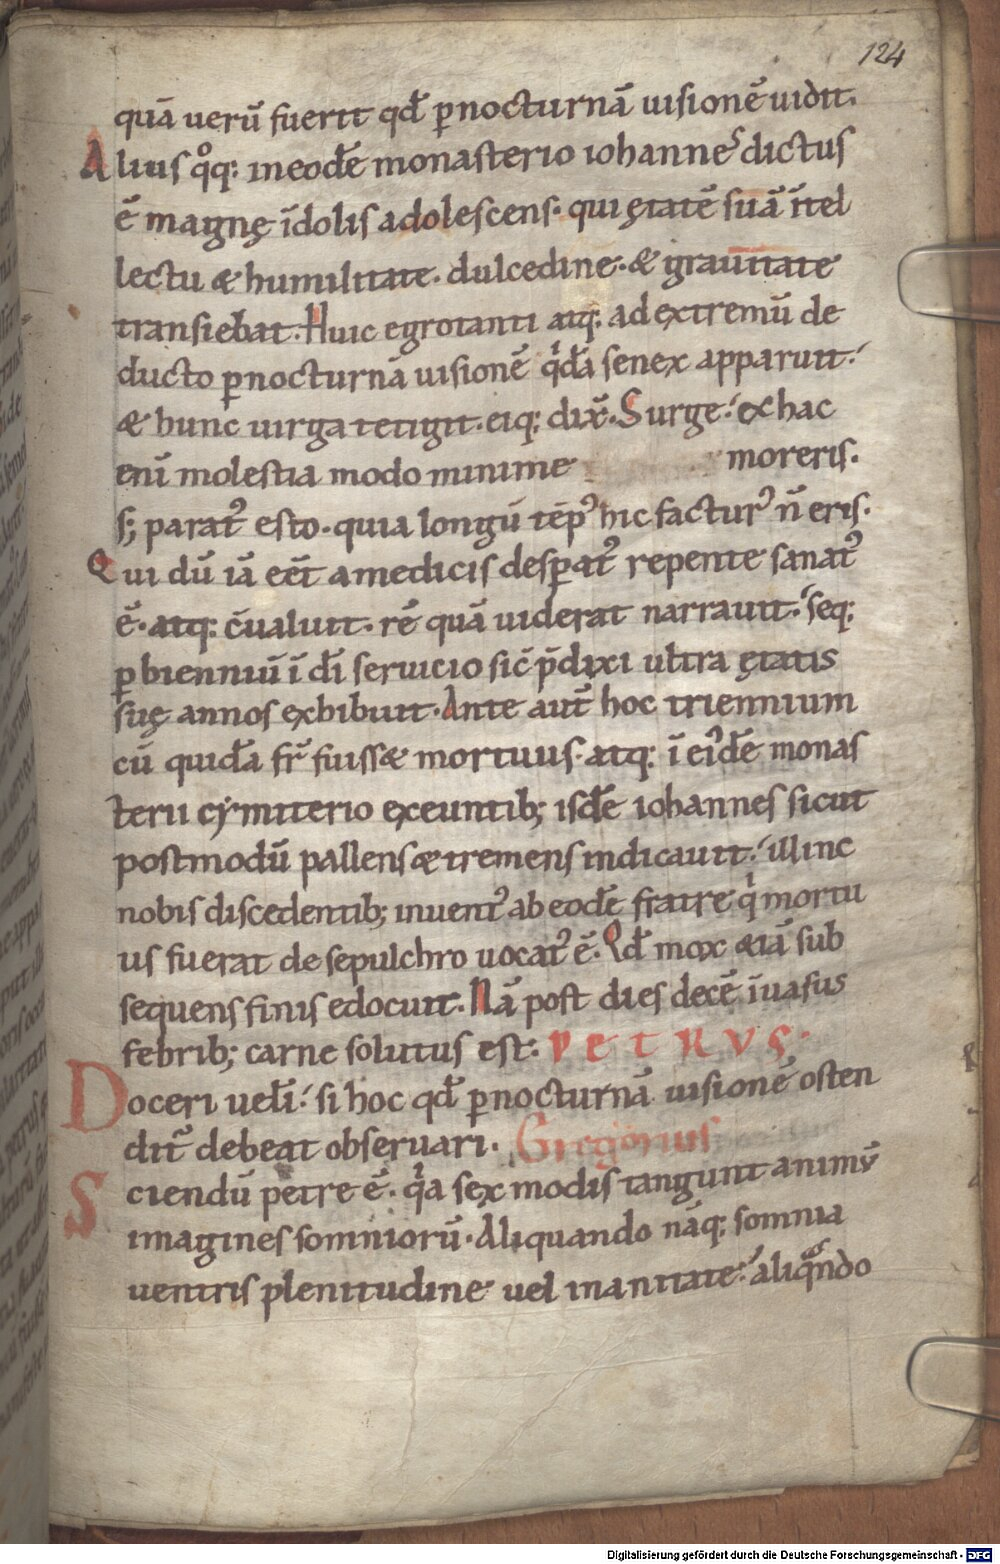 124
quā uerū fuerit qđ ꝑnocturnā uisionē uidit.
Alius q̊q; ineodē monasterio iohanneſ dictus
ē magnę īdolis adolescens. qui ętatē suā ītel
lectu & humilitate. dulcedine. & grauitate
transiebat. Huic egrotanti atq; ad extremū de
ducto ꝑnocturnā uisionē qⁱdā senex apparuit.
& hunc uirga tetigit. eiq; dix̄. Surge. ex hac
enī molestia modo minime moreris.
s; parat᷒ esto. quia longū tēp᷒ hic factur᷒ ñ eris.
Qui dū iā eēt amedicis desꝑat᷒ repente sanat᷒
ē. atq; c̄ualuit. rē quā uiderat narrauit. seq;
ꝑ bienniū ī dī seruicio sic̄ p̄dixi ultra ętatis
suę annos exhibuit. Ante aut̄ hoc triennium
cū quidā fr̄ fuiss& mortuus. atq; ī eiⁱdē monas
terii cymiterio exeuntib; isdē iohannes sicut
postmodū pallens & tremens indicauit. illinc
nobis discedentib; inuent᷒ ab eodē fratre qⁱ mortu
us fuerat de sepulchro uocat᷒ ē. Qđ mox &iā sub
sequens finis edocuit. Nā post dies decē īuasus
febrib; carne solutus est. PETRVS.
Doceri uelī. si hoc qđ ꝑnocturnā uisionē osten
dit̄ debeat obseruari. Gregorius
Sciendū petre ē. qⁱa sex modis tangunt animū
imagines somniorū. Aliquando nāq; somnia
uentris plenitudine uel inanitate. aliqᵃndo
Digitalisierung gefördert durch die Deutsche Forschungsgemeinschaft - DFG